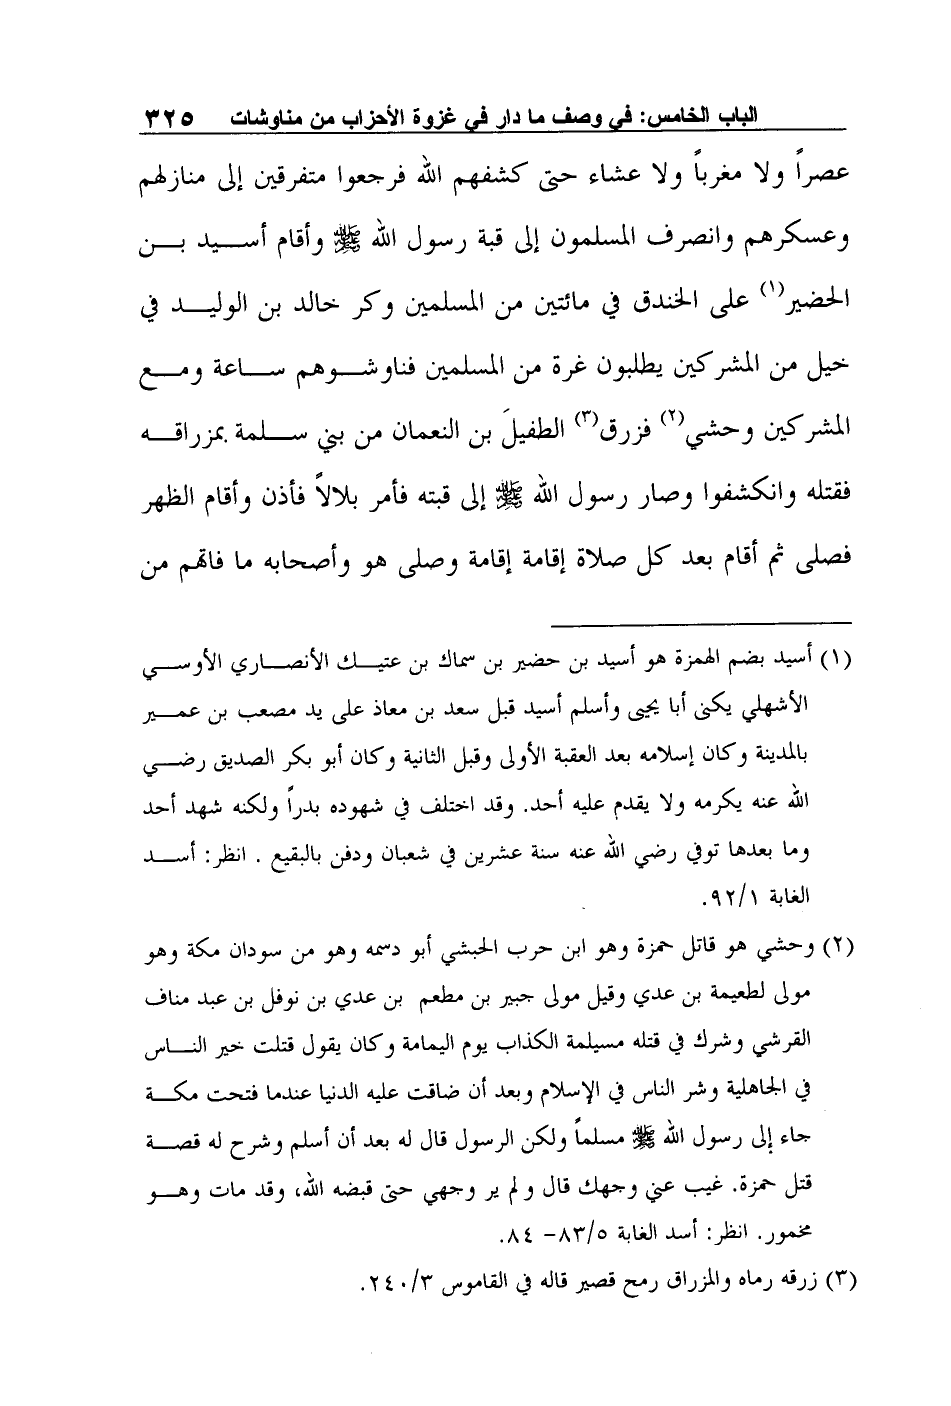 الباب الخامس: في وصف ما دار في غزوة الأحزاب من مناوشات ٣٢٥
عصراً ولا مغرباً ولا عشاء حتى كشفهم الله فرجعوا متفرقين إلى منازلهم
وعسكرهم وانصرف المسلمون إلى قبة رسول الله ﷺ وأقام أسيد بن
الحضير(١) على الخندق في مائتين من المسلمين وكر خالد بن الوليد في
خيل من المشركين يطلبون غرة من المسلمين فناوشوهم ساعة ومع
المشركين وحشي(٢) فزرق(٣) الطفيلَ بن النعمان من بني سلمة بمزراقه
فقتله وانكشفوا وصار رسول الله ﷺ إلى قبته فأمر بلالاً فأذن وأقام الظهر
فصلى ثم أقام بعد كل صلاة إقامة إقامة وصلى هو وأصحابه ما فاتهم من
(١) أسيد بضم الهمزة هو أسيد بن حضير بن سماك بن عتيك الأنصاري الأوسي
الأشهلي يكنى أبا يحيى وأسلم أسيد قبل سعد بن معاذ على يد مصعب بن عمير
بالمدينة وكان إسلامه بعد العقبة الأولى وقبل الثانية وكان أبو بكر الصديق رضي
الله عنه يكرمه ولا يقدم عليه أحد. وقد اختلف في شهوده بدراً ولكنه شهد أحد
وما بعدها توفي رضي الله عنه سنة عشرين في شعبان ودفن بالبقيع . انظر: أسد
الغابة ٩٢/١.
(٢) وحشي هو قاتل حمزة وهو ابن حرب الحبشي أبو دسمه وهو من سودان مكة وهو
مولى لطعيمة بن عدي وقيل مولى جبير بن مطعم بن عدي بن نوفل بن عبد مناف
القرشي وشرك في قتله مسيلمة الكذاب يوم اليمامة وكان يقول قتلت خير الناس
في الجاهلية وشر الناس في الإسلام وبعد أن ضاقت عليه الدنيا عندما فتحت مكة
جاء إلى رسول الله ﷺ مسلماً ولكن الرسول قال له بعد أن أسلم وشرح له قصة
قتل حمزة. غيب عني وجهك قال و لم ير وجهي حتى قبضه الله، وقد مات وهو
مخمور. انظر: أسد الغابة ٨٣/٥– ٨٤.
(٣) زرقه رماه والمزراق رمح قصير قاله في القاموس ٢٤٠/٣.